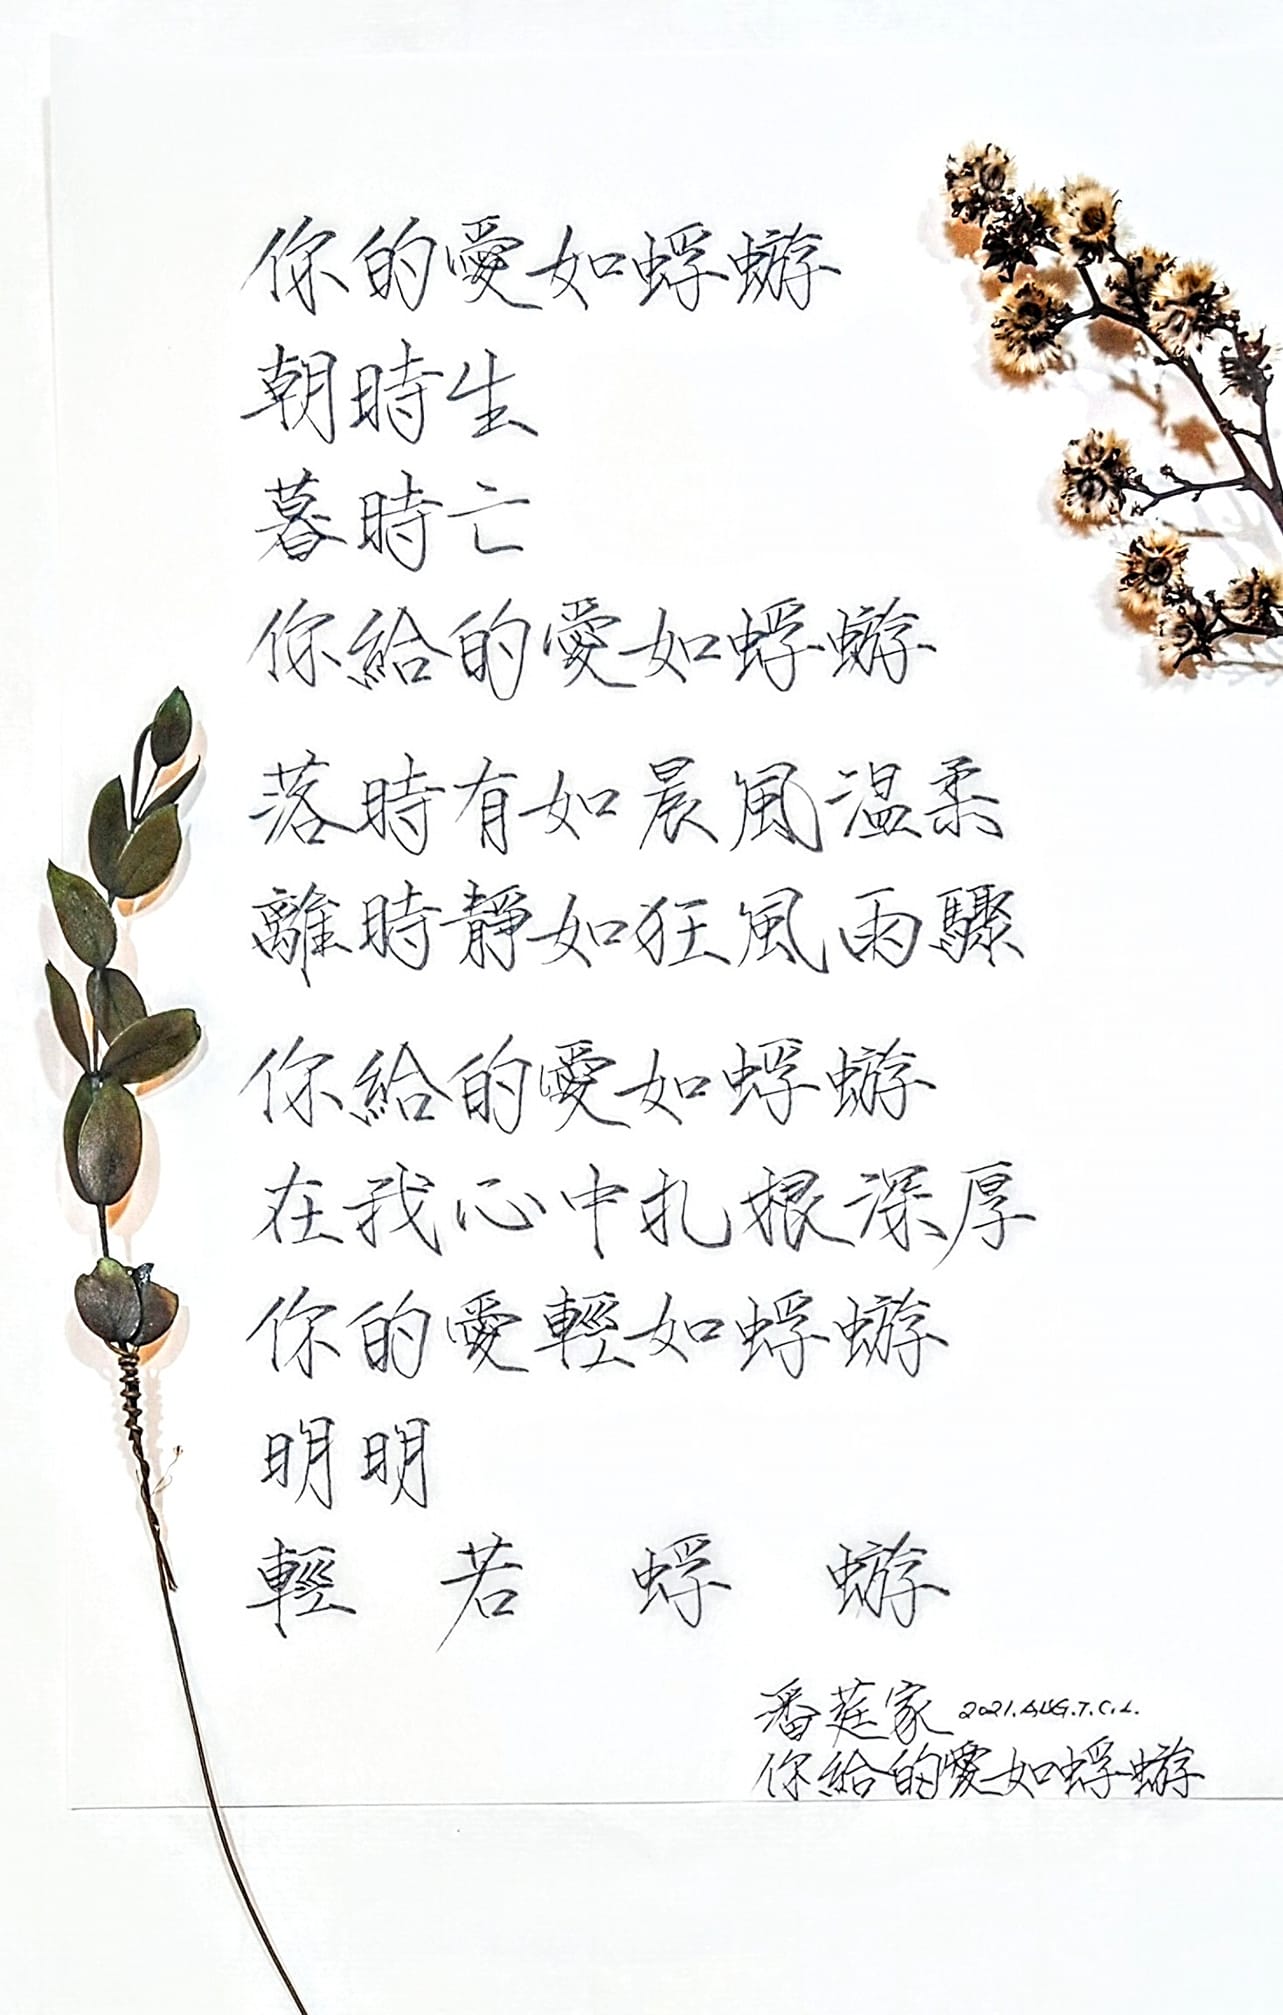 你的愛如蜉蝣
朝時生
暮時亡
你給的愛如蜉蝣
落時有如晨風溫柔
離時靜如狂風雨驟
你給的愛如蜉蝣
在我心中扎根深厚
你的愛輕如蜉蝣
明明
輕 若 蜉 蝣
潘莛家 2021.AUG.T.C.L.
你給的愛如蜉蝣